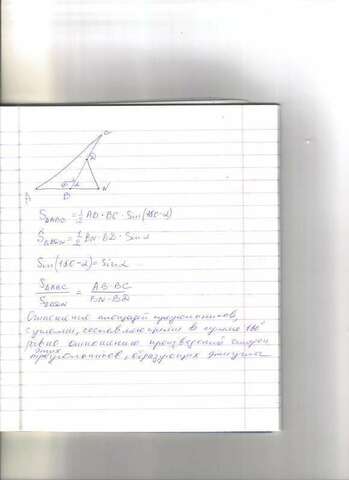 C
D
A B N
S△ABC = 1/2 AB · BC · Sin(180-α)
S△BDN = 1/2 BN · BD · Sin α
Sin(180-α) = Sin α
S△ABC / S△BDN = AB · BC / BN · BD
Отношение площадей треугольников,
с углами, составляющими в сумме 180°
равно отношению произведений сторон
этих
треугольников, образующих эти углы.